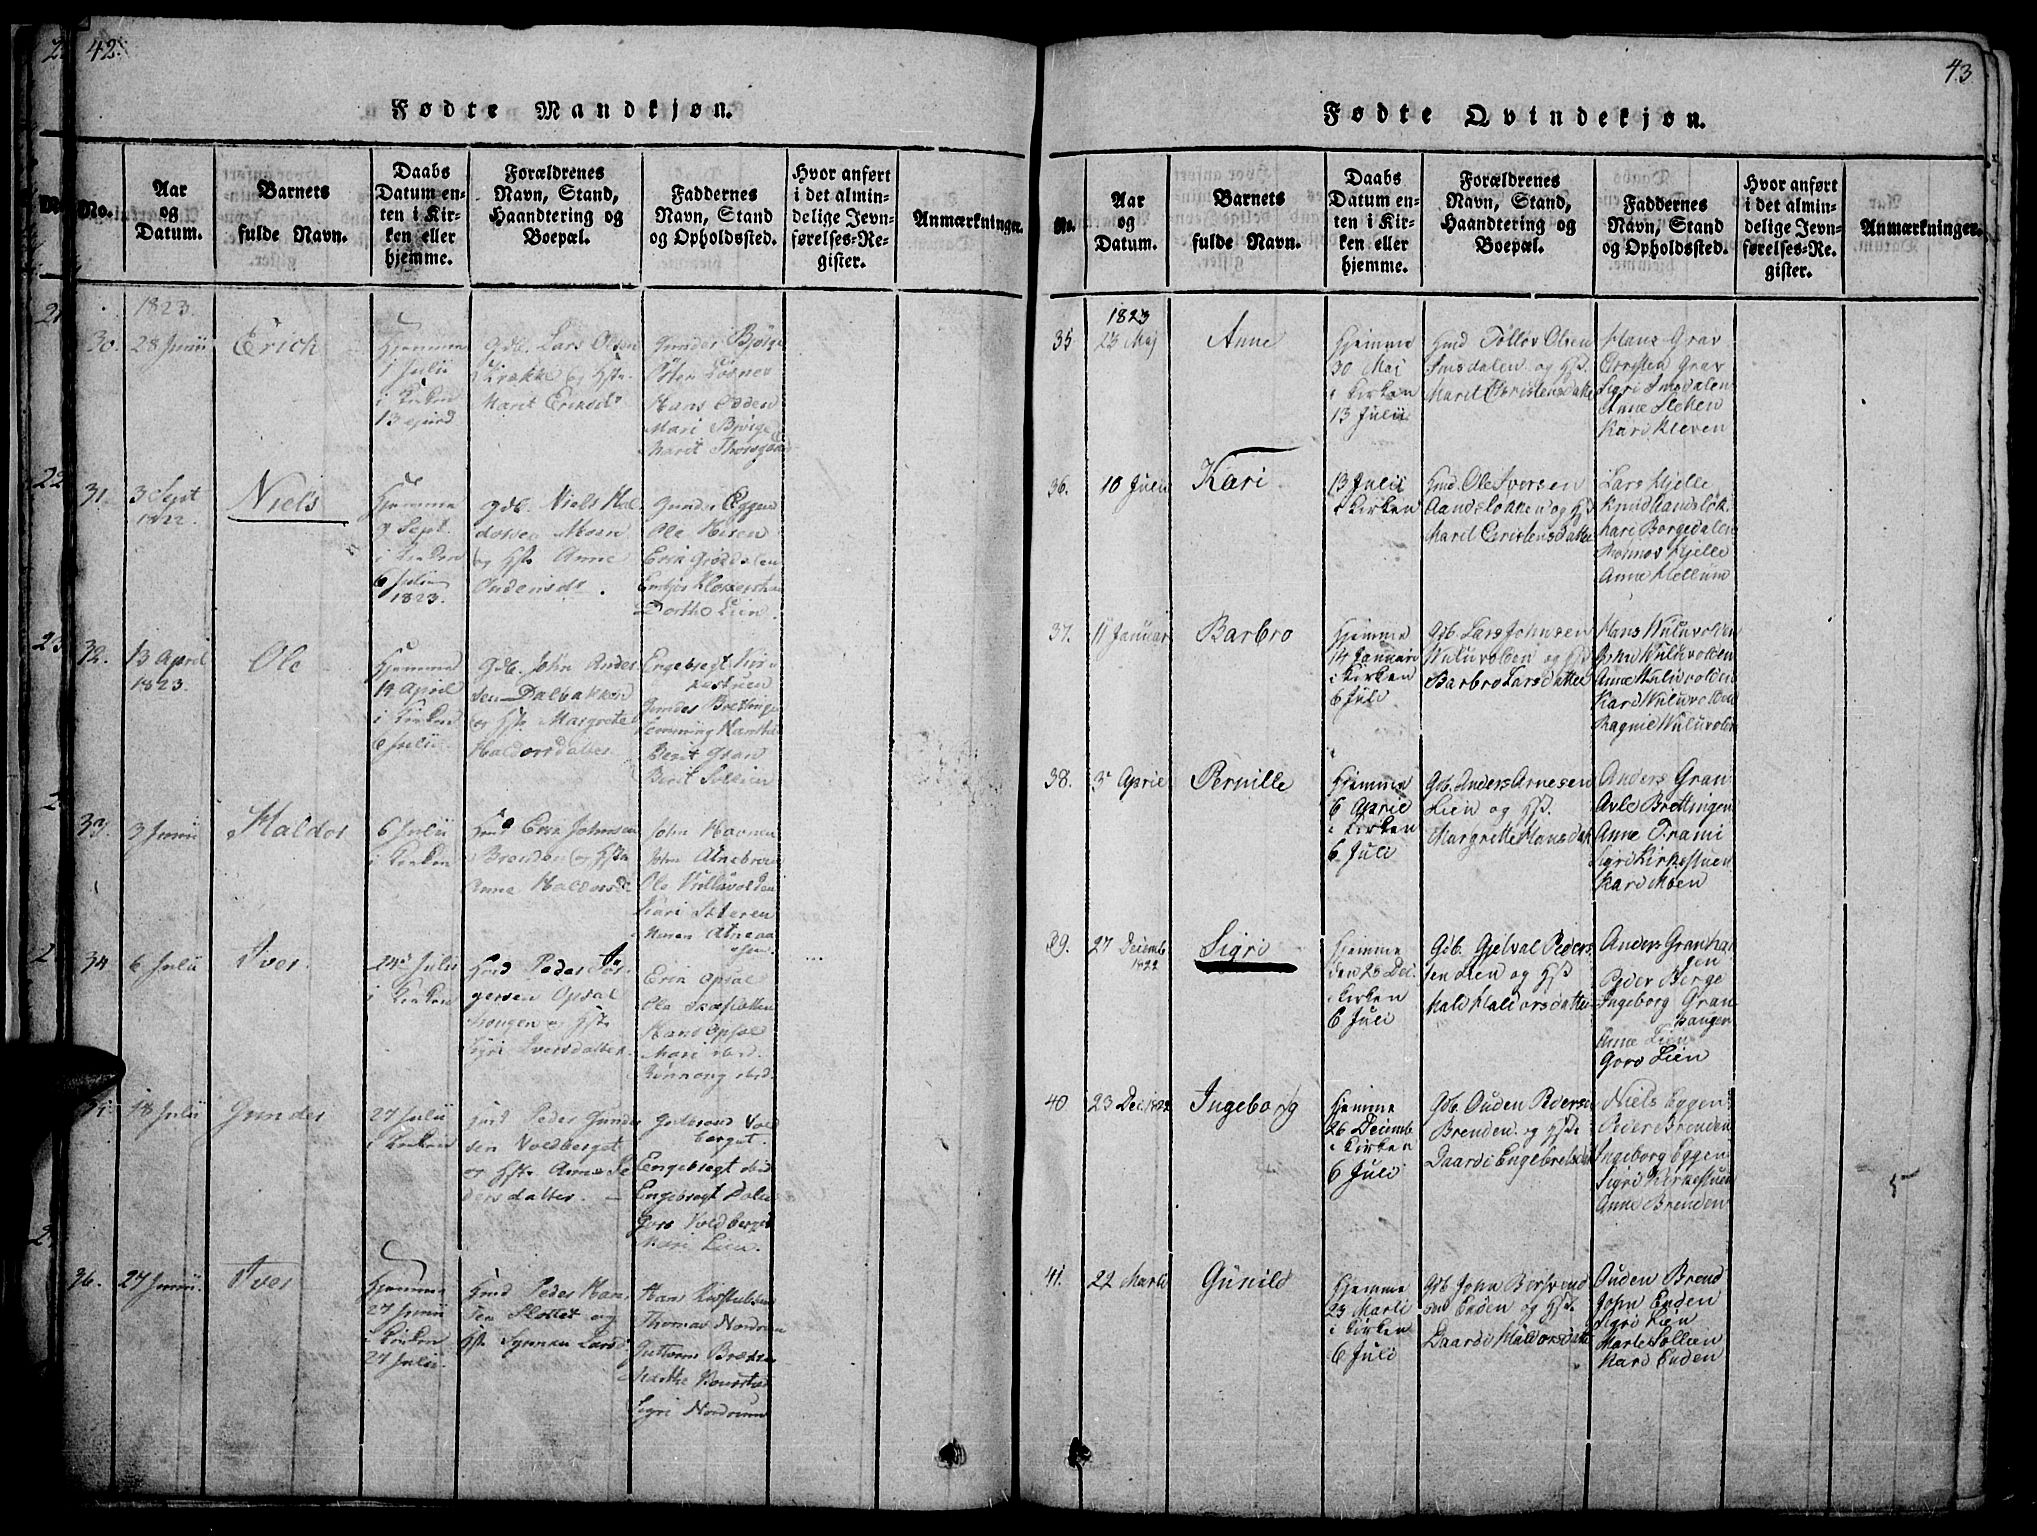 42.
Fødte Mandkjøn.
No.
Aar
og
Datum.
Barnets
fulde Navn.
Daabs
Datum en-
ten i Kir-
ken eller
hjemme.
Forældrenes
Navn, Stand,
Haandtering og
Boepæl.
Faddernes
Navn, Stand
og Opholdssted.
Hvor anført
i det almin-
delige Jevn-
førelses-Re-
gister.
Anmærkninger.
1823.
30.
28 Junii
Erich
Hjemme
1 Julii
i Kirken
13
Gdb. Lars Olsen
og Hst.
Marit Ericksdt
Gunder Bjørge
Hans Odden
Mari Bjørge
Marit Thorsgaard
31.
3 Sept
1822.
Niels
Hjemme
9 Sept.
i Kirken
6 Julii
1823.
Gdb. Niels Hal
dorsen Moen
og Hst Anne
Oudensdt.
Gunder Eggen
Ole Moen
Erik Grøtdalen
Dorthe Lien.
32.
13 April
1823.
Ole
Hjemme
14 April
i Kirken
6 Julii
Gdb. John Ander
sen Dalbakken
og Hst. Margrete
Haldorsdatter
Engebregt Kir
kestuen
Gunder Brettingen
Berit Gran
Berit Sollien
33.
3 Junii
Haldor
6 Julii
i Kirken
Hmd Even Johnsen
Brenden og Hst
Anne Haldorsd
John Atnebroen
Ole Wulluvolden
Kari Sæteren
Maren Atneaa
osen.
34
6 Julii
Iver.
24de Julii
i Kirken
Hmd Peder Tor
gersen Opsal
hougen og Hst.
Sigri Iversdatter.
Erik Opsal
Hans Opsal
Mari ibid.
Rønnoug ibid.
35
18 Julii
Gunder
27 Julii
i Kirken
Hmd Peder Gunder
sen Voldberget
og Hst Anne Pe
dersdatter. —
Gudbrand Vold
berget.
Engebregt ibid
Engebregt
Goro Voldberget
Mari Lien.
36.
27 Junii.
Iver
Hjemme
27 Junii
i Kirken
27 Julii.
Hmd Peder Han
sen Slottet og
Hst. Synnøv Larsd.
Thomas Nordrum
Guttorm Brekken
Marthe
Sigri Nordrum
43
Fødte Qvindekjøn.
No.
Aar
og
Datum.
Barnets
fulde Navn.
Daabs
Datum en-
ten i Kir-
ken eller
hjemme.
Forældrenes
Navn, Stand,
Haandtering og
Boepæl.
Faddernes
Navn, Stand
og Opholdssted.
Hvor anført
i det almin-
delige Jevn-
førelses-Re-
gister.
Anmærkninger.
1823
35
23 Maj
Anne
Hjemme
30 Maj
i Kirken
13 Julii
Hmd Tollov Olsen
Imsdalen og Hst.
Marit Christensdatter
Hans Grav
Christen Grav
Sigri Imsdalen
Anne Stenen
Kari Kleven
36.
10 Julii
Kari
13 Julii
i Kirken
Hmd. Ole Iversen
Aandsløkken og Hst
Marit Christensdatter
Lars Hjelle
Knud Aandsløk.
Kari Borgedalen
Anne Mellum
37.
11 Januar
Barbro
Hjemme
14 Januari
i Kirken
6 Juli
Gdb. Lars Johnsen
Wuluvolden og Hst
Barbro Larsdatter
Hans Wuluvolden
John Wuluvolden
Anne Wuluvolden
Kari Wuluvolden
Ragnil Wuluvolden
38.
3e Aprile
Pernille
Hjemme
6 Aprile
i Kirken
6 Juli
Gdb. Anders Arnesen
Lien og Hst.
Margrette Hansdatt
Anders Gran
Arle Brettingen
Anne Trami
Sigri Kirkestuen
Kari Moen
39.
27 Decemb
1822
Sigri
Hjemme
den 28 Dec.
i Kirken
6 Juli
Gdb. Gjelval Peder
sen Lien og Hst
Mali Haldorsdatter
Anders Granhau
gen
Peder Berge
Ingeborg Gran
haugen
Anne Lien
Goro Lien
40
23 Dec. 1822
Ingeborg
Hjemme
26 Decemb
i Kirken
6 Juli
Gdb. Ouden Peders
Brenden og Hst.
Daardi Engebretsdat
Niels Eggen
Peder Brenden
Ingeborg Eggen
Sigri Kirkestuen
Anne Brenden
41.
22 Marti
Gunild
Hjemme
23 Marti
i Kirken
6 Juli
Gdb. John Bersvend
sen Enden og Hst.
Daardi Haldorsdatte
Ouden Brend
John Enden
Sigri Lien
Marte Sollien
Kari Enden